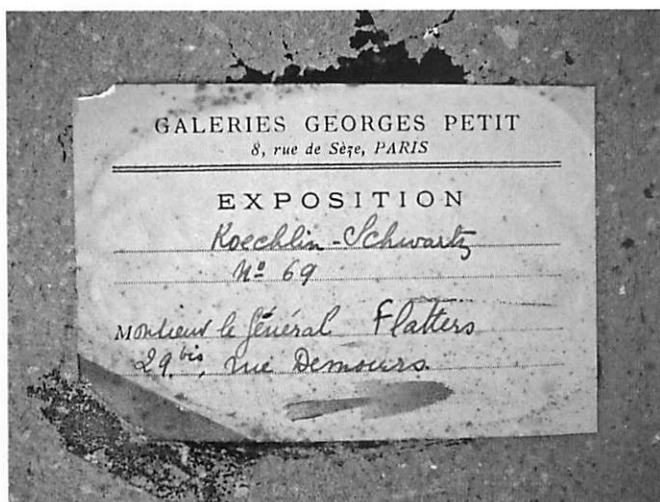 GALERIES GEORGES PETIT
8, rue de Sèze, PARIS
EXPOSITION
Koechlin-Schwartz
Nº 69
Monsieur le Général Flatters
29 bis, rue Demours.